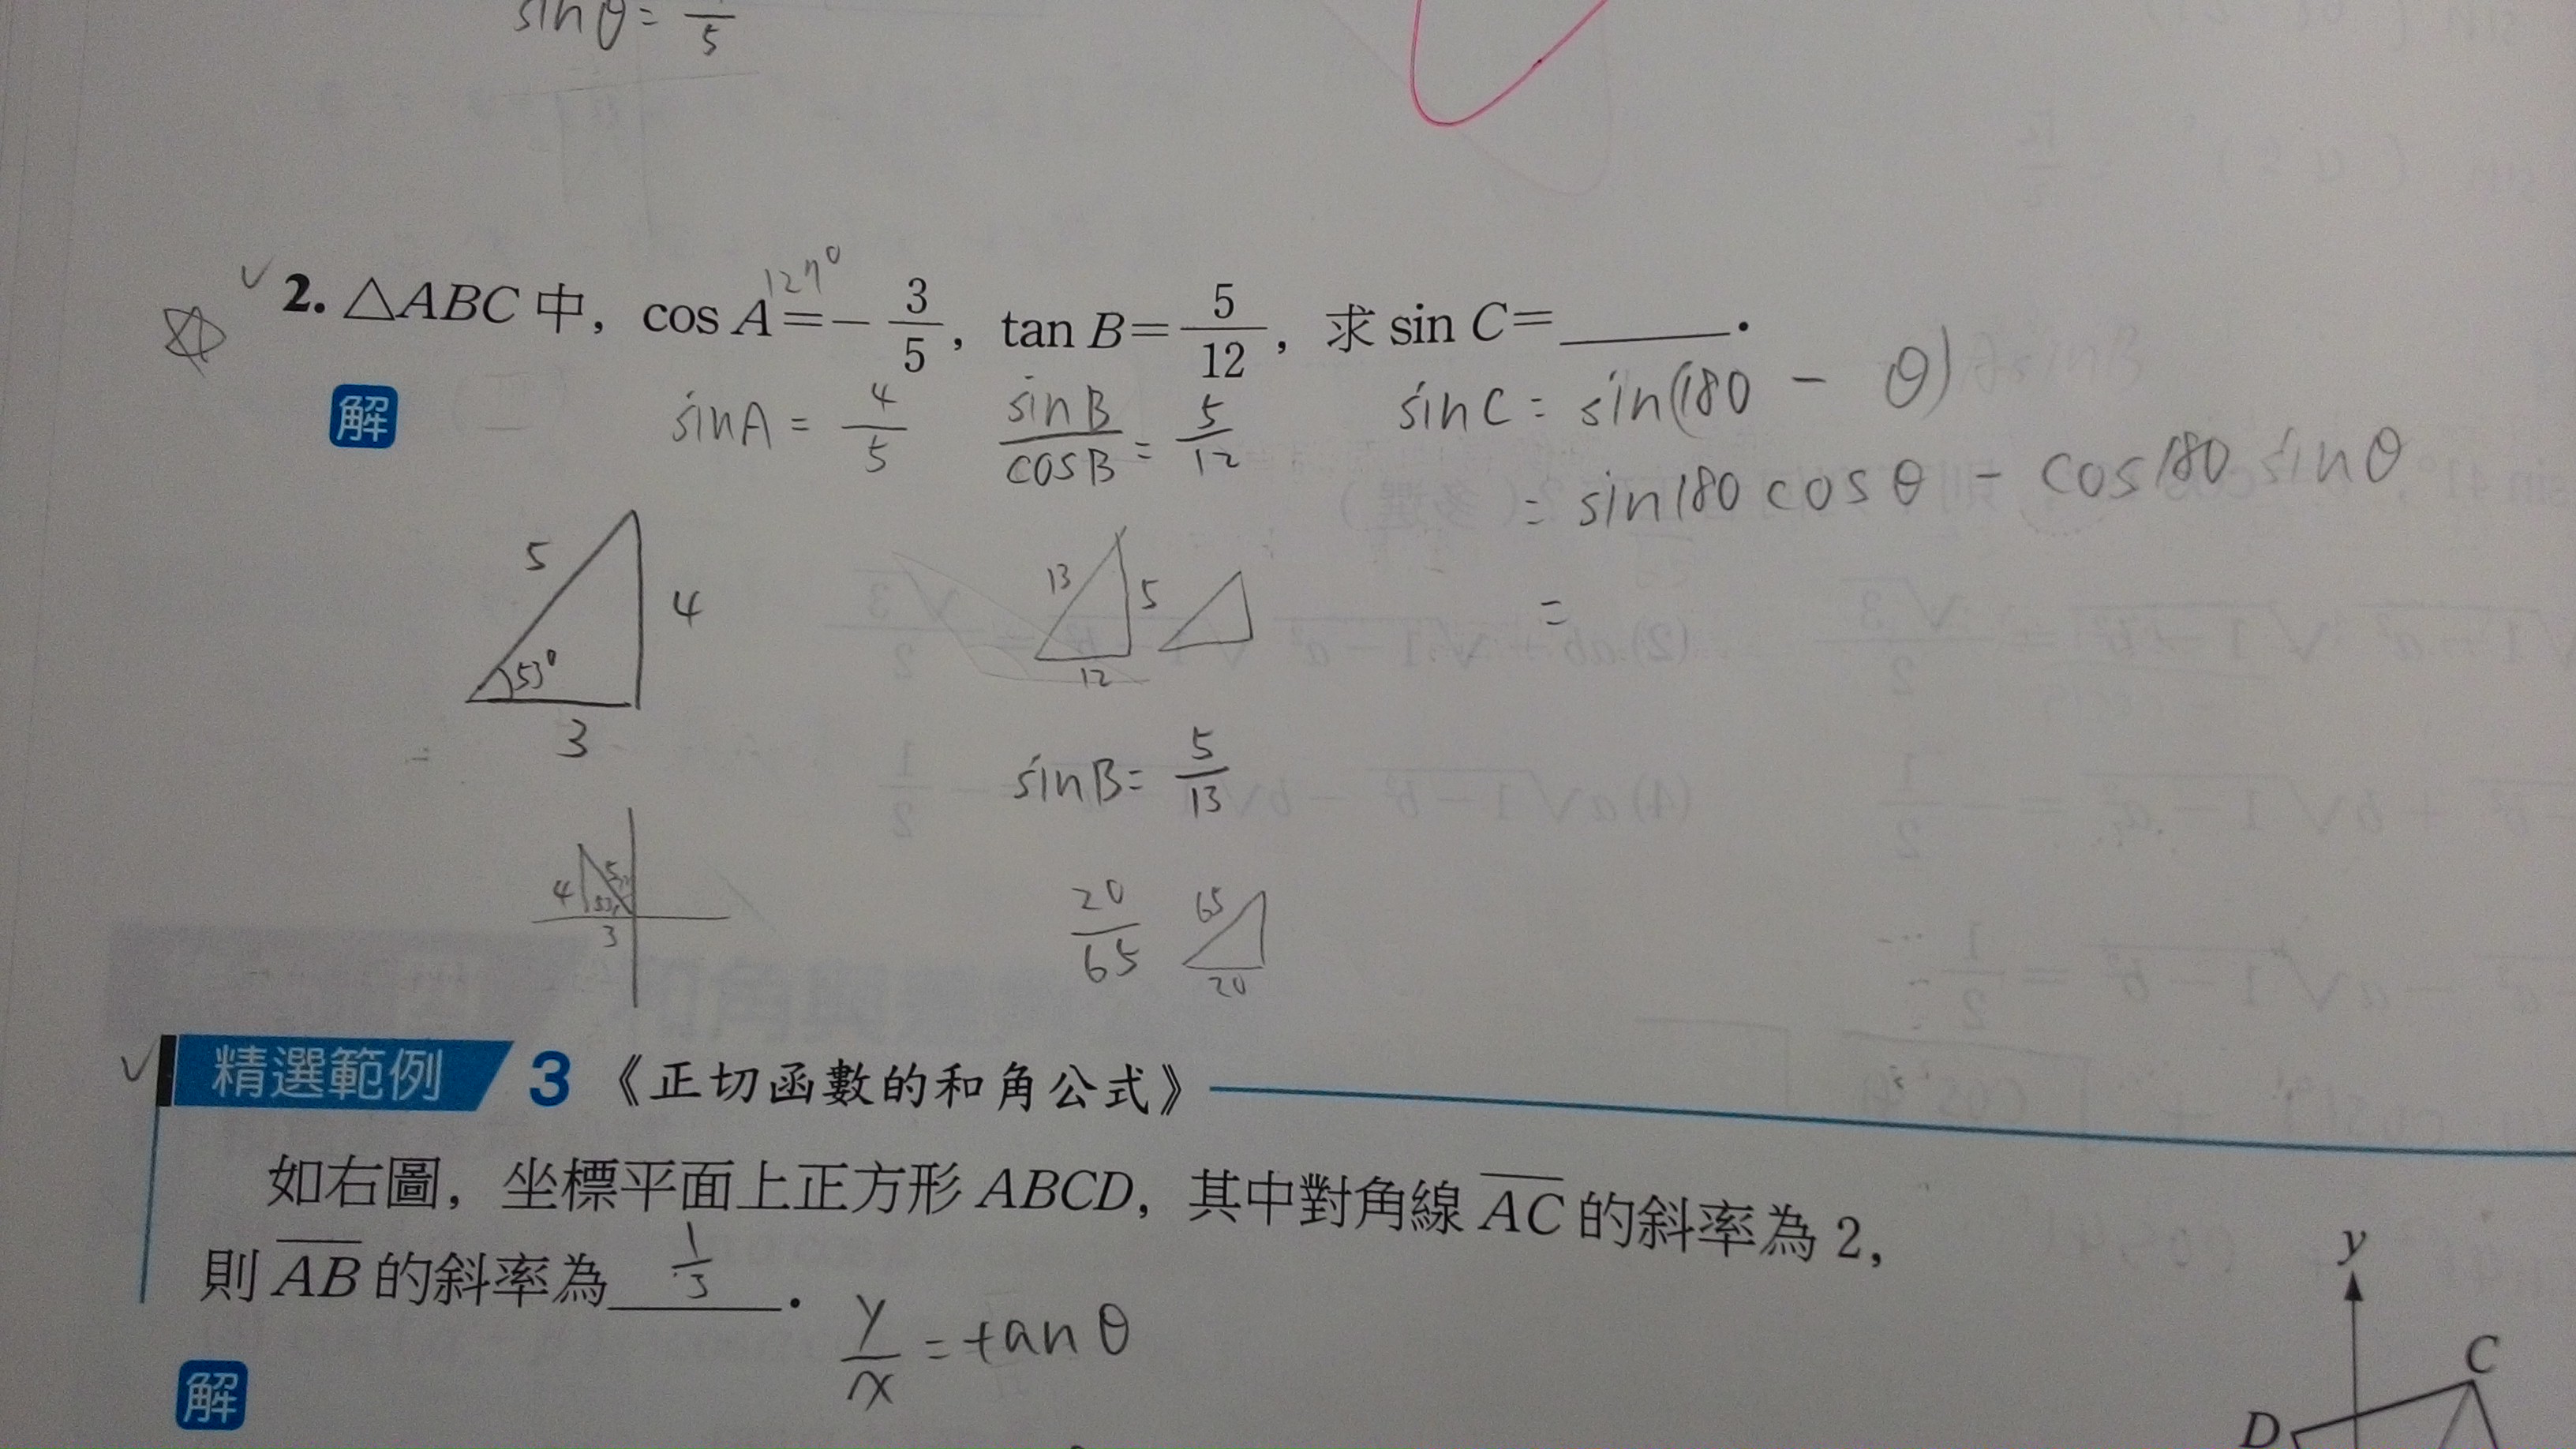 sinθ = /5
127°
2. △ABC 中，cos A = −3/5，tan B = 5/12，求 sin C = ______．
解
sinA = 4/5
sinB/cosB = 5/12
sinC = sin(180 − θ)
= sin180 cosθ − cos180 sinθ
=
5 4 53° 3
13 5 12
sinB = 5/13
4 5 53° 3
20/65 65 20
精選範例 3 《正切函數的和角公式》
如右圖，坐標平面上正方形 ABCD，其中對角線 AC 的斜率為 2，
則 AB 的斜率為 1/3．
y/x = tanθ
解
y
C
D